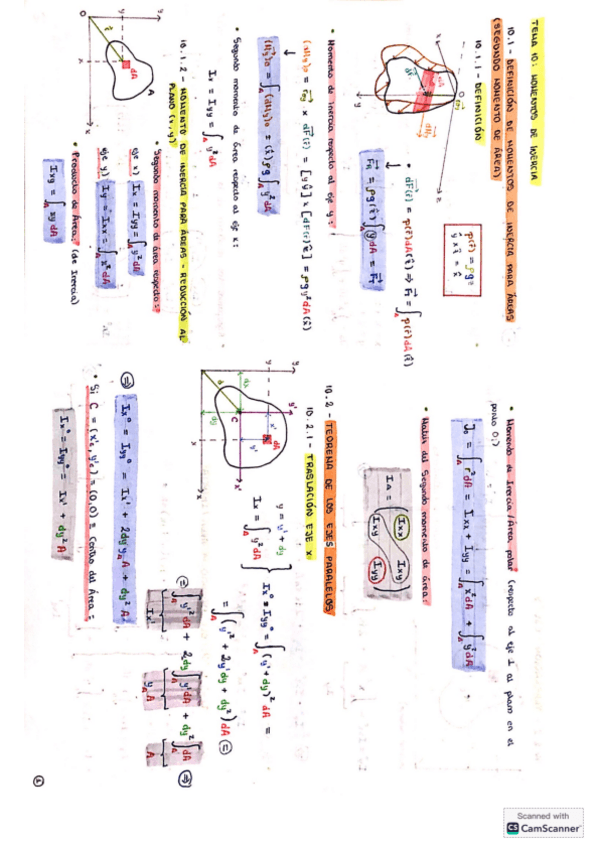 TEMA 10: MOMENTOS DE INERCIA
10.1 - DEFINICIÓN DE MOMENTOS DE INERCIA PARA ÁREAS
(SEGUNDO MOMENTO DE ÁREA)
10.1.1 - DEFINICIÓN
p(r⃗) = ρgz
ŷ x ẑ = x̂
• dF⃗(r⃗) = p(r⃗)dA(ẑ) ⇒ F⃗₁ = ∫_A p(r⃗)dA(ẑ)
F⃗₁ = ρg(ẑ)∫_A y dA = F⃗₁
• Momento de inercia respecto al eje y:
= [yŷ] x [dF(r⃗)ẑ] = ρgy²dA(x̂)
= ∫_A = (x̂)ρg∫_A y²dA
• Segundo momento de área respecto al eje x:
Ix = Iyy = ∫_A y²dA
10.1.2 - MOMENTO DE INERCIA PARA ÁREAS - REDUCCIÓN AL
PLANO (x,y)
• Segundo momento de área respecto a:
eje x) Ix = Iyy = ∫_A y²dA
eje y) Iy = Ixx = ∫_A x²dA
• Producto de Área: (de Inercia)
Ixy = ∫_A xy dA
• Momento de Inercia/Área polar (respecto al eje ⊥ al plano en el
punto O:)
J₀ = ∫_A r²dA = Ixx + Iyy = ∫_A x²dA + ∫_A y²dA
• Matriz del Segundo momento de área:
I_A = ( Ixx Ixy
Ixy Iyy )
10.2 - TEOREMA DE LOS EJES PARALELOS
10.2.1 - TRASLACIÓN EJE X
y = y' + dy
Ix = ∫_A y²dA
Ix° = Iyy° = ∫_A (y' + dy)² dA =
= ∫_A (y'² + 2y'dy + dy²)dA =
= ∫_A y'²dA + 2dy∫_A y'dA + dy²∫_A dA ⇒
Ix' y_A A A
⇒ Ix° = Iyy° = Ix' + 2dy y_A A + dy²A
• Si C = (x'c, y'c) = (0,0) = Centro del Área =
Ix° = Iyy° = Ix' + dy²A
Scanned with
CS CamScanner